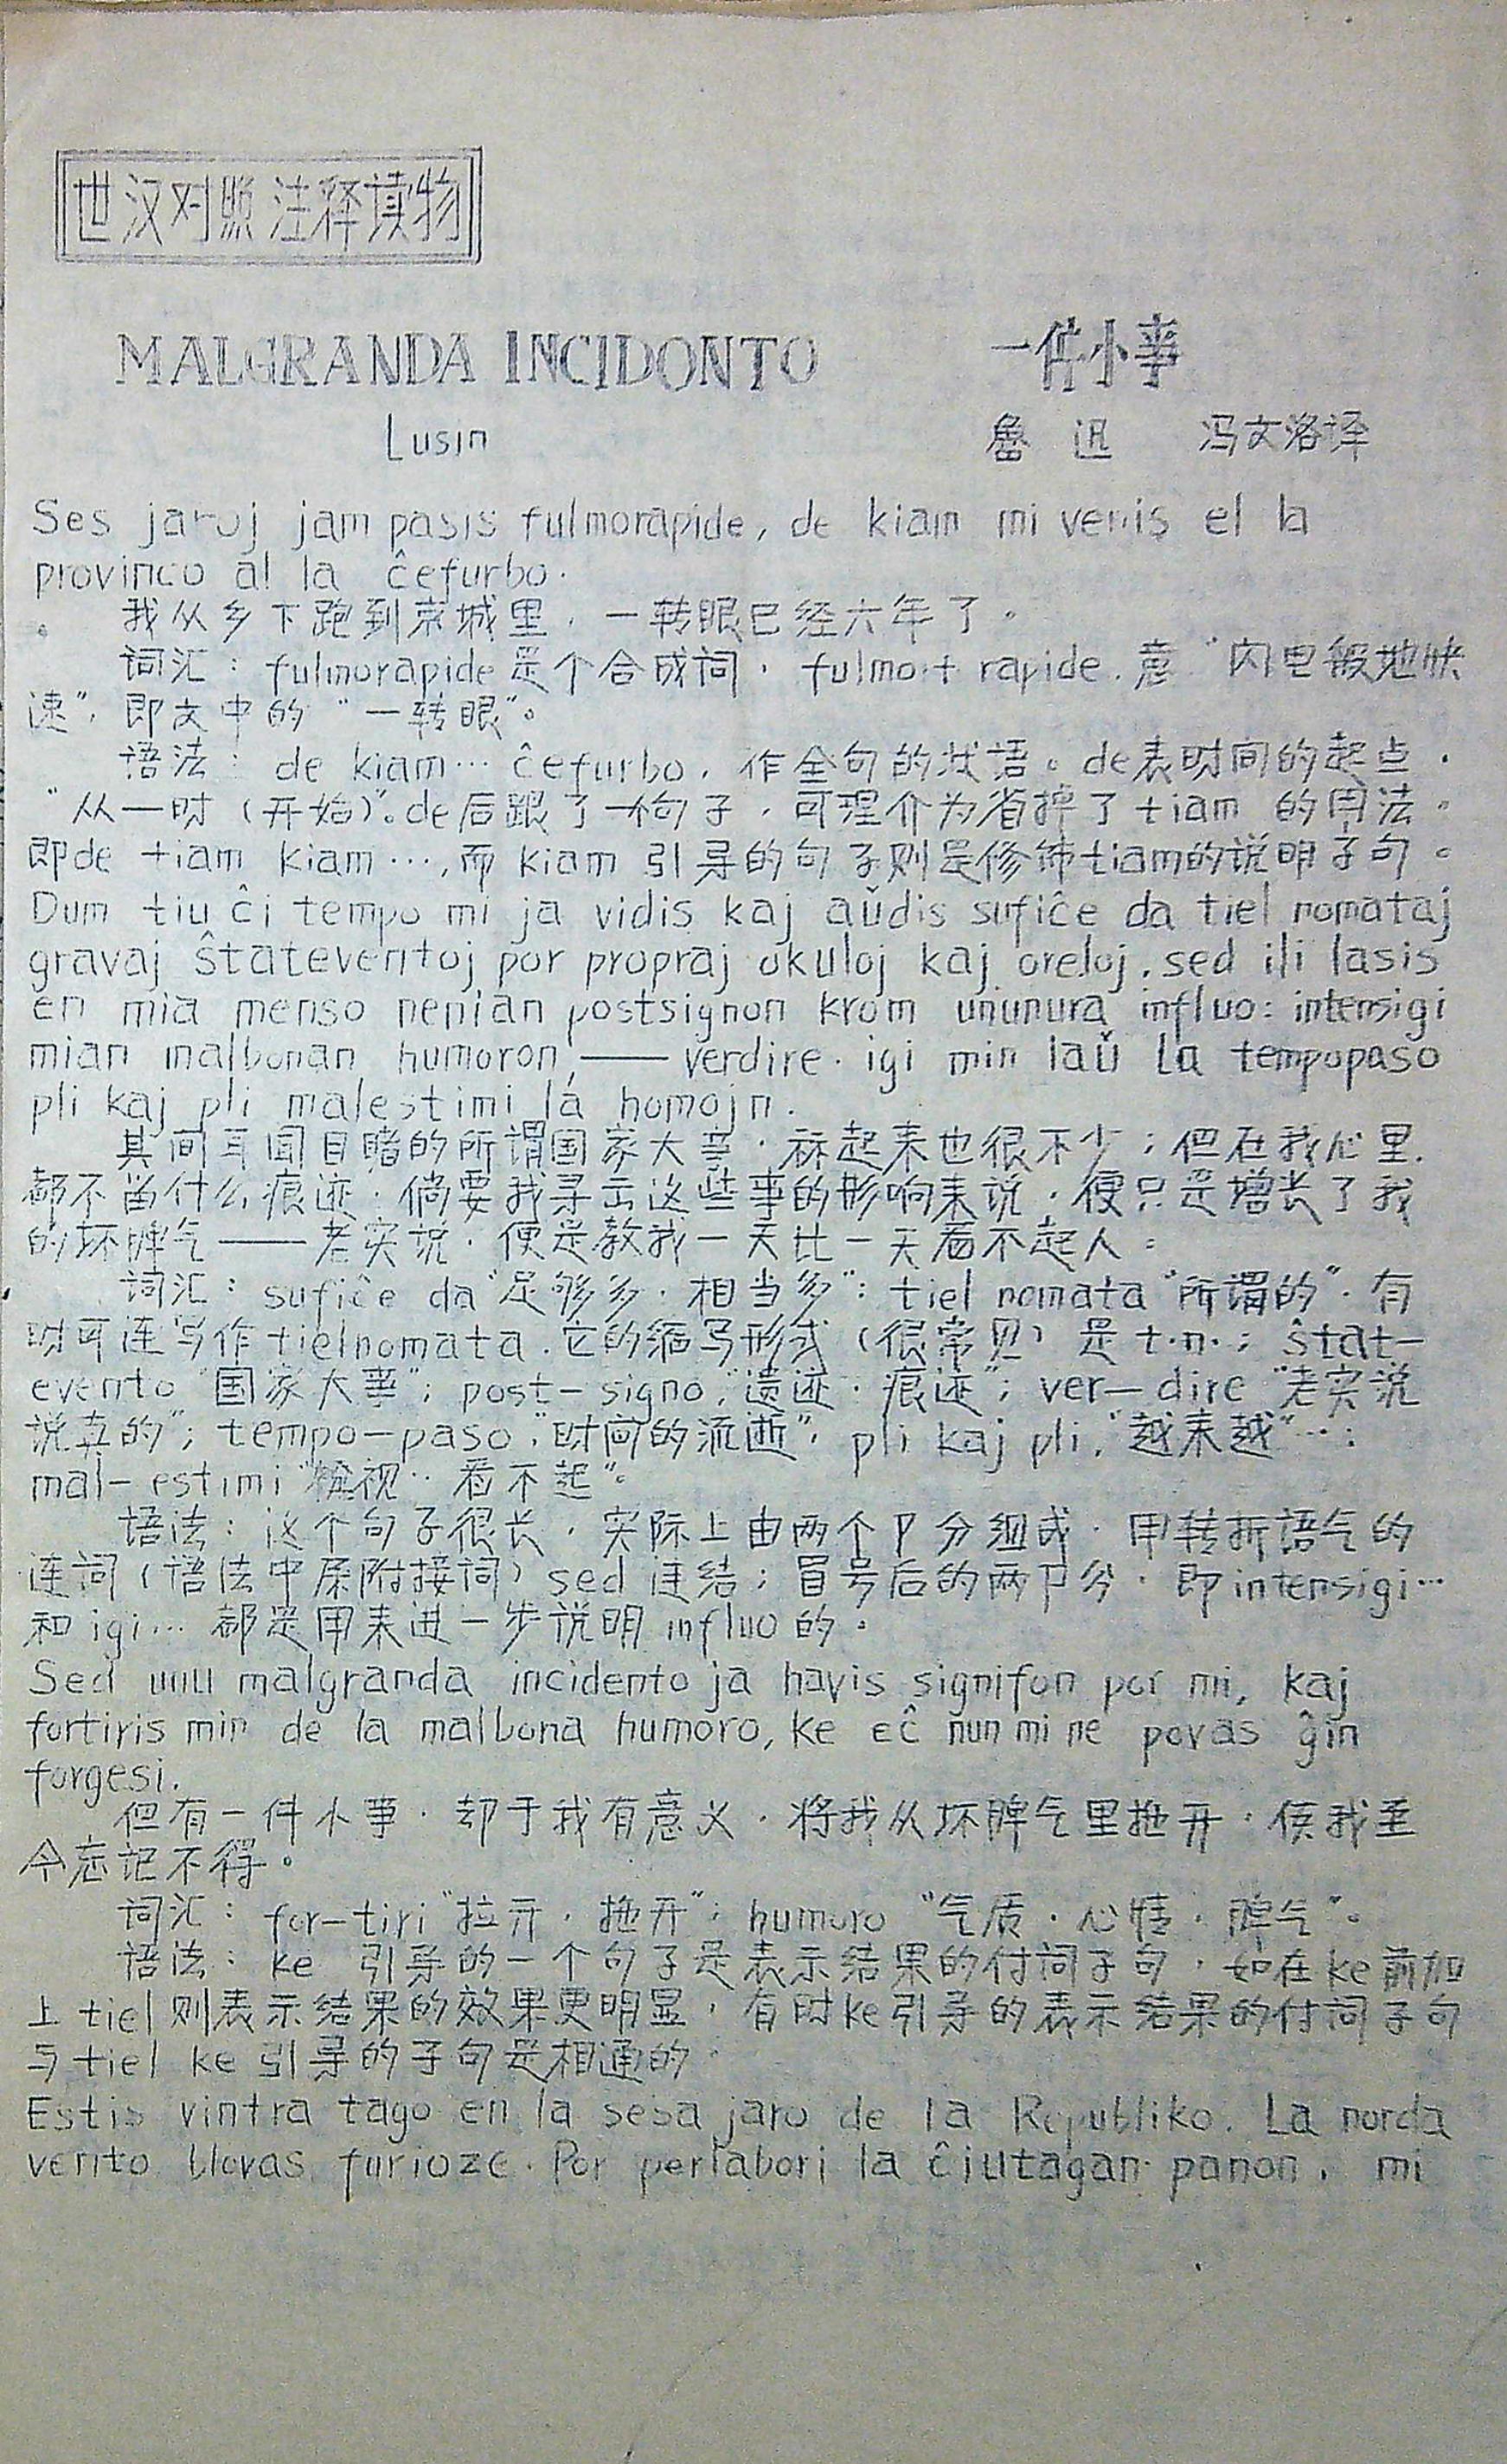 世汉对照 注释读物
MALGRANDA INCIDONTO 一件小事
Lusin 鲁 迅 冯文洛译
Ses jaroj jam pasis fulmorapide, de kiam mi venis el la
provinco al la ĉefurbo.
我从乡下跑到京城里，一转眼已经六年了。
词汇：fulmorapide是个合成词，fulmo+ rapide，意“闪电般地快
速”，即文中的“一转眼”。
语法：de kiam… ĉefurbo，作全句的状语。de表时间的起点，
“从一时（开始）”。de后跟了一个句子，可理介为省掉了tiam 的用法。
即de tiam kiam…，而 kiam 引导的句子则是修饰tiam的说明子句。
Dum tiu ĉi tempo mi ja vidis kaj aŭdis sufiĉe da tiel nomataj
gravaj ŝtateventoj por propraj okuloj kaj oreloj, sed ili lasis
en mia menso nenian postsignon krom ununura influo: intensigi
mian malbonan humoron, —— verdire, igi min laŭ la tempopaso
pli kaj pli malestimi la homojn.
其间耳闻目睹的所谓国家大事，祘起来也很不少；但在我心里，
都不留什么痕迹，倘要我寻出这些事的影响来说，便只是增长了我
的坏脾气——老实说，便是教我一天比一天看不起人。
词汇：sufiĉe da“足够多，相当多”；tiel nomata“所谓的”，有
时可连写作tielnomata，它的缩写形式（很常见）是t.n.；ŝtat-
evento“国家大事”；post-signo，“遗迹，痕迹”；ver-dire“老实说
说真的”；tempo-paso，“时间的流逝”，pli kaj pli，“越来越”…；
mal-estimi“轻视，看不起”。
语法：这个句子很长，实际上由两个卩分组成，用转折语气的
连词（语法中属附接词）sed 连结；冒号后的两卩分，即intensigi…
和 igi… 都是用来进一步说明 influo 的。
Sed unu malgranda incidento ja havis signifon por mi, kaj
fortiris min de la malbona humoro, ke eĉ nun mi ne povas ĝin
forgesi.
但有一件小事，却于我有意义，将我从坏脾气里拖开，使我至
今忘记不得。
词汇：for-tiri“拉开，拖开”；humoro “气质，心情，脾气”。
语法：ke 引导的一个句子是表示结果的付词子句，如在ke前加
上 tiel 则表示结果的效果更明显，有时ke引导的表示结果的付词子句
与tiel ke 引导的子句是相通的。
Estis vintra tago en la sesa jaro de la Republiko. La norda
vento blovas furioze. Por perlabori la ĉiutagan panon, mi